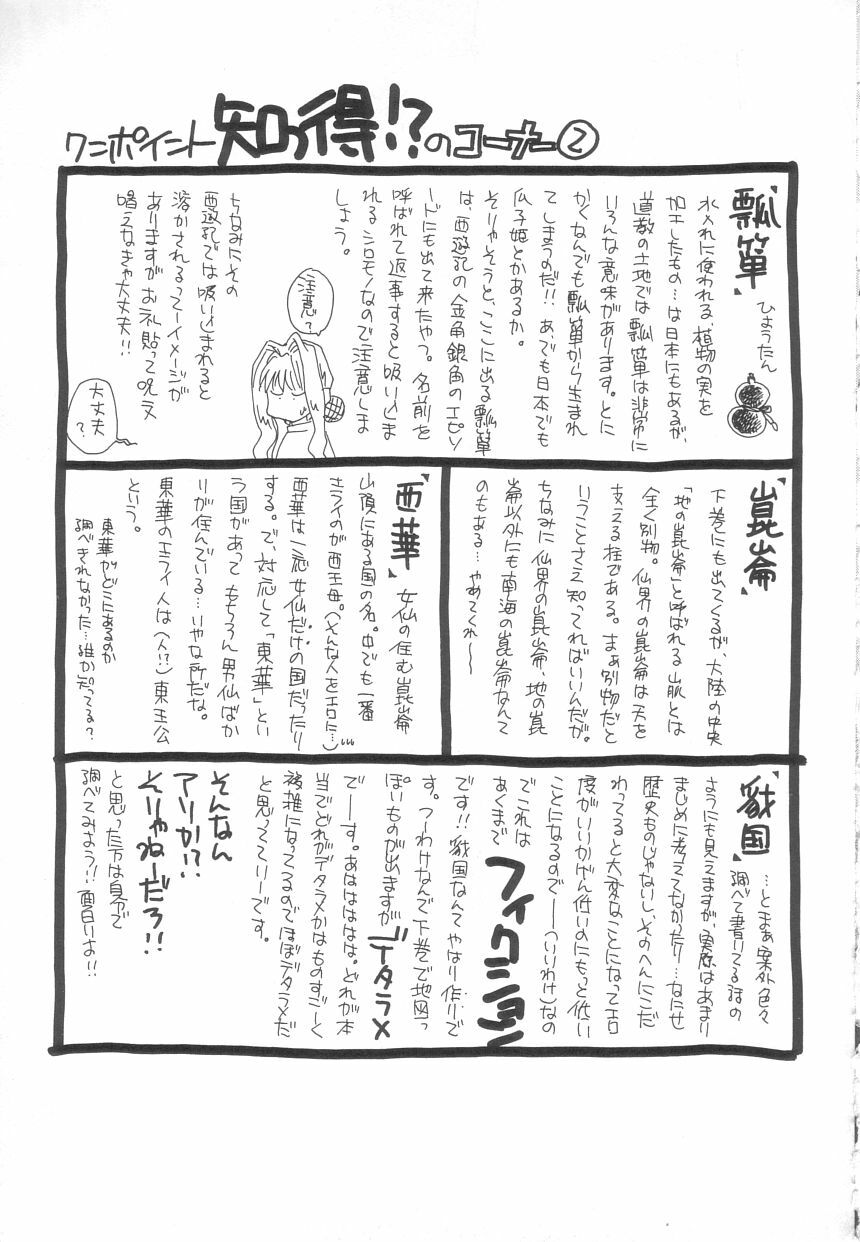 ワンポイント知っ得!?のコーナー②
『瓢箪』
ひょうたん
水入れに使われる、植物の実を
加工したもの…は日本にもあるが、
道教の土地では瓢箪は非常に
いろんな意味があります。とに
かくなんでも瓢箪から生まれ
てしまうのだ!!あ、でも日本でも
瓜子姫とかあるか。
そりゃそうと、ここに出る瓢箪
は、西遊記の金角銀角のエピソ
ードにも出て来たやつ。名前を
呼ばれて返事すると吸い込ま
れるシロモノなので注意しま
しょう。
注意?
ちなみにその
西遊記では吸い込まれると
溶かされるってイメージが
ありますがお札貼って呪文
唱えなきゃ大丈夫!!
大丈夫?
『崑崙』
下巻にも出てくるが、大陸の中央
「地の崑崙」と呼ばれる山脈とは
全く別物。仙界の崑崙は天を
支える柱である。まぁ別物だと
いうことさえ知ってればいいんだが。
ちなみに仙界の崑崙、地の崑
崙以外にも南海の崑崙なんて
のもある…やめてくれ〜〜
『西華』
女仙の住む崑崙
山頂にある国の名。中でも一番
エライのが西王母。(そんな人をエロに…)
西華は一応女仙だけの国だったり
する。で、対応して「東華」とい
う国があってもちろん男仙ばか
りが住んでいる…いやな所だな。
東華のエライ人は(人!?)東王公
という。
東華がどこにあるのか
調べきれなかった…誰か知ってる?
国』
…とまぁ案外色々
調べて書いてる話の
ようにも見えますが、実際はあまり
まじめに考えてなかったり…なにせ
歴史ものじゃないし、そのへんにこだ
わってると大変なことになってエロ
度がいいかげん低いのにもっと低い
ことになるので──(いいわけ)なの
でこれは
あくまで
フィクション
です!!国なんてやはり作りで
す。つーわけなんで下巻で地図っ
ぽいものが出ますがデタラメ
でーーす。あはははは。どれが本
当でどれがデタラメかはものすごーく
複雑になってるのでほぼデタラメだ
と思ってていーです。
そんなん
アリか!?
そりゃねーだろ!!
と思った方は自分で
調べてみよう!!面白いよ!!